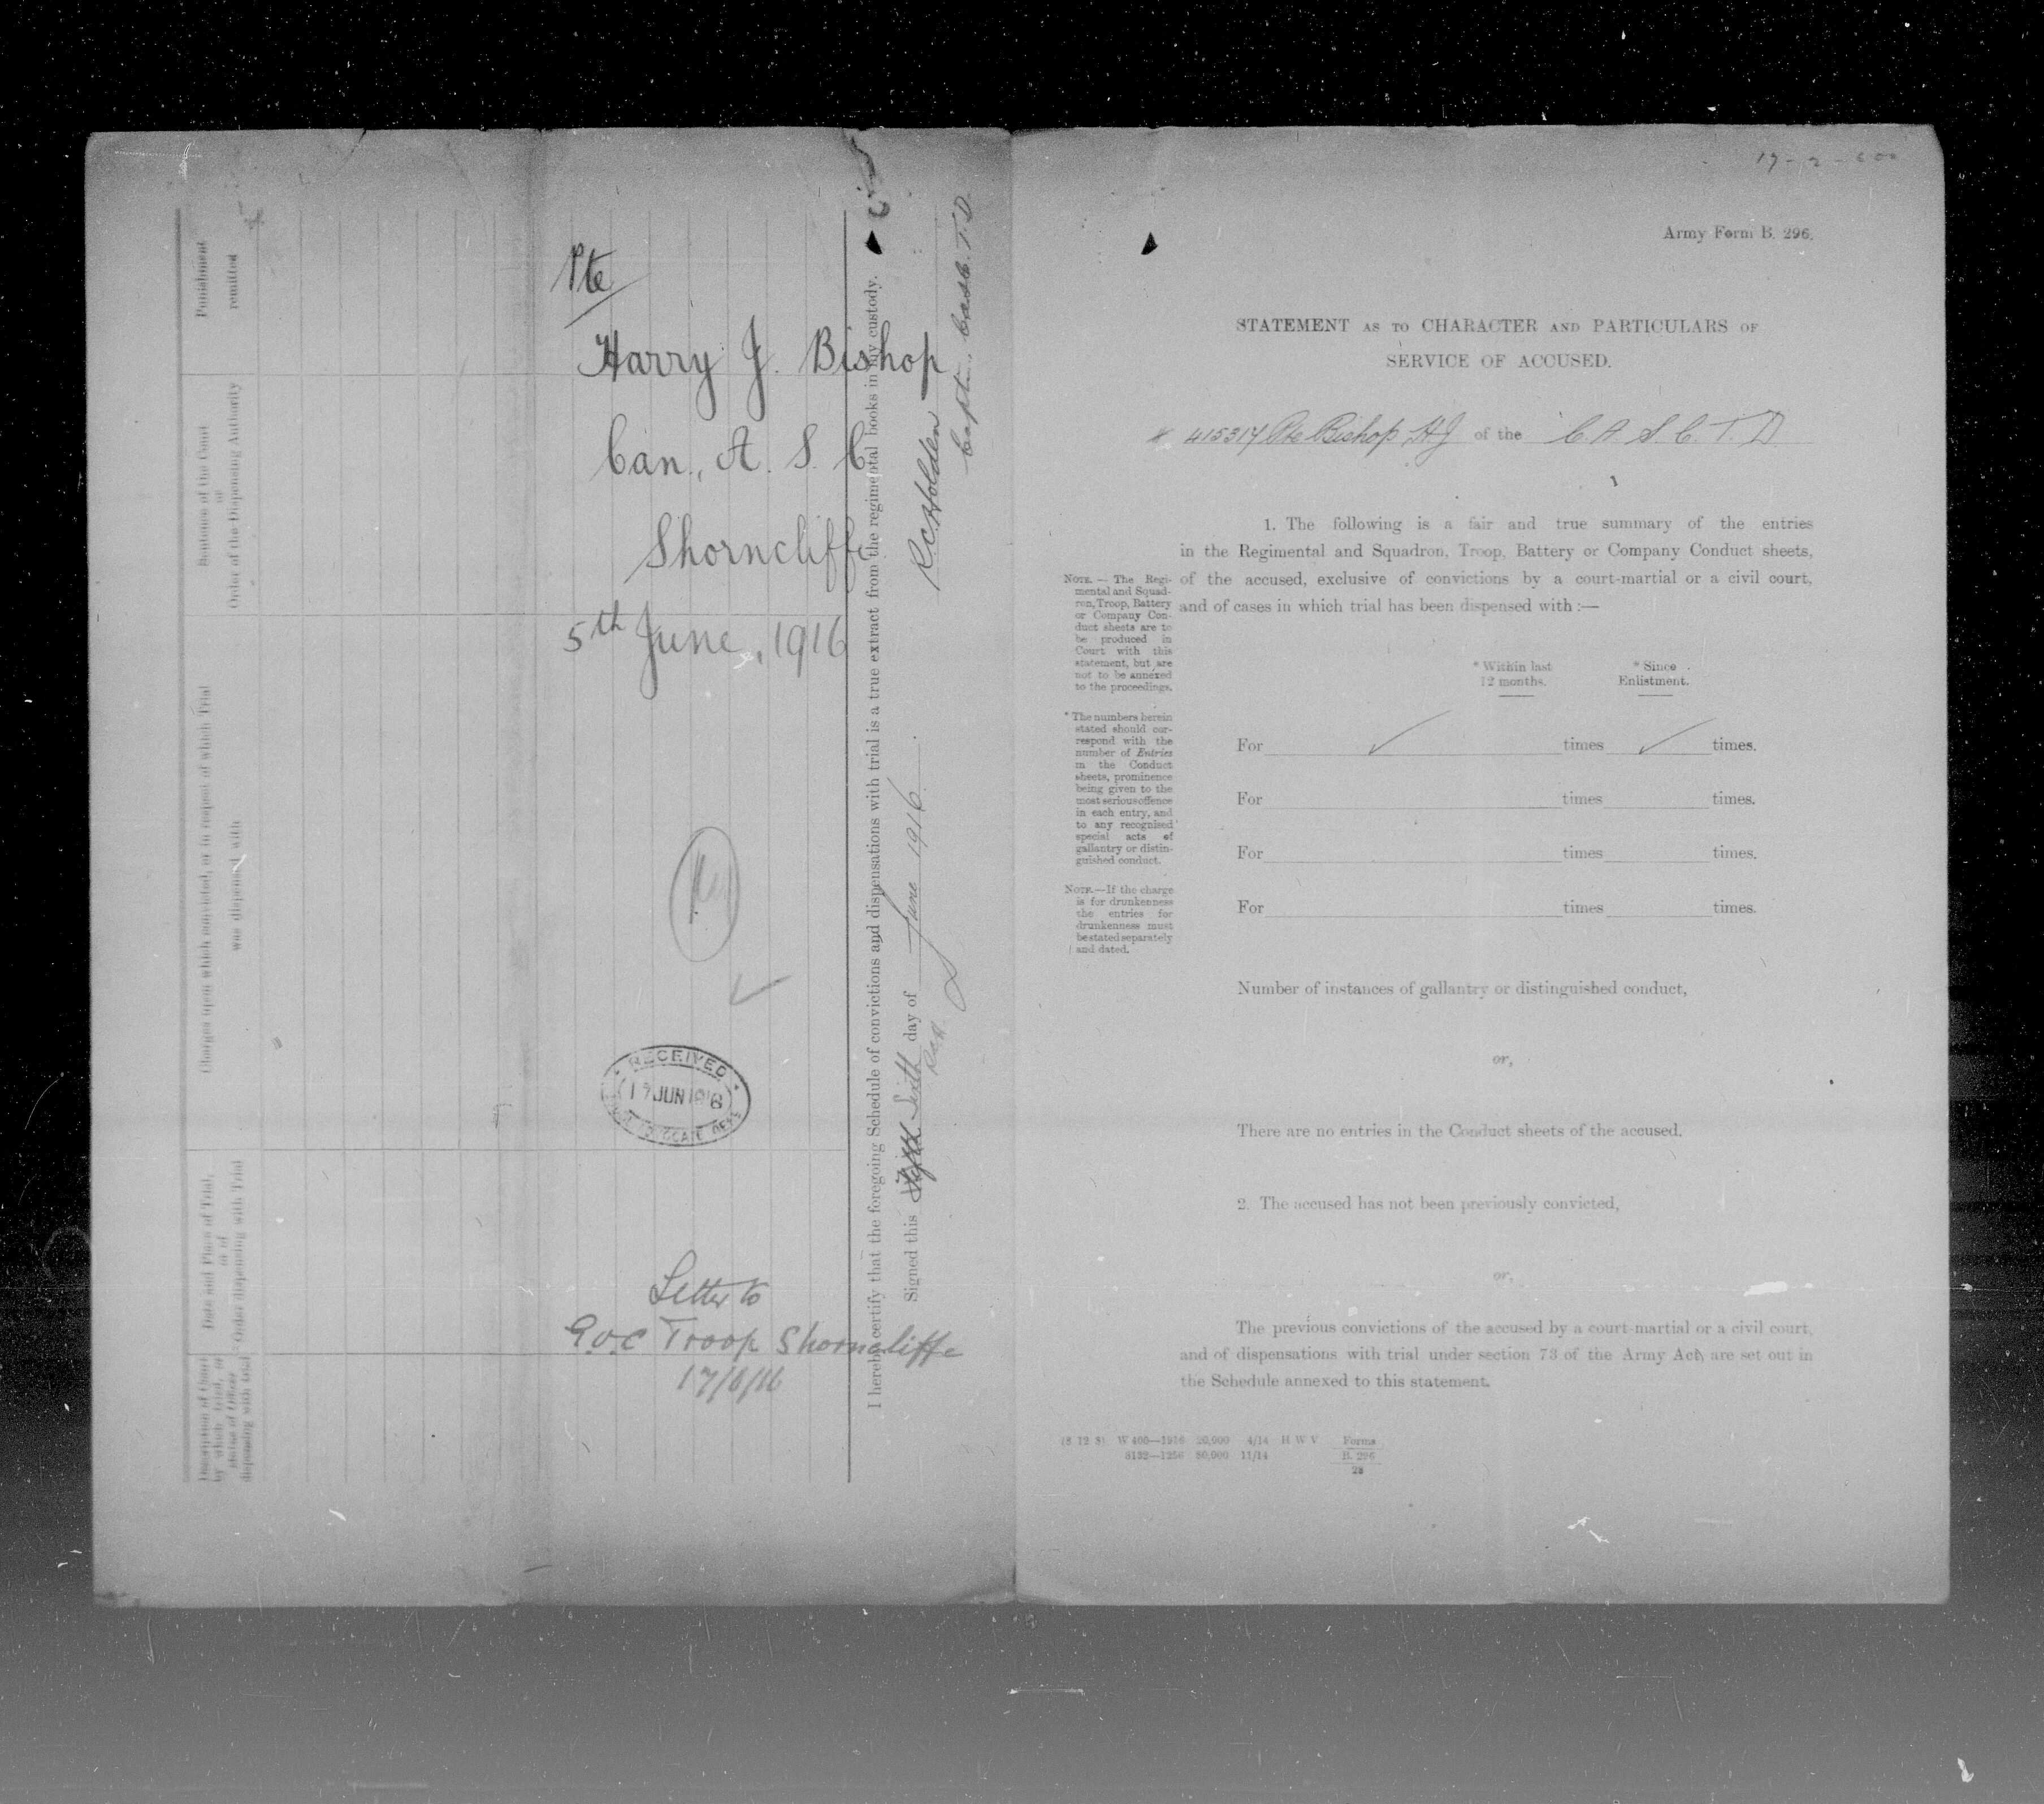 Punishment
remitted
Sentence of the Court
or
Order of the Dispensing Authority
Charges upon which convicted, or in respect of which Trial
was dispensed with
Date and Place of Trial,
or of
Order dispensing with Trial
Description of Court
by which tried, or
status of Officer
dispensing with trial
Pte
Harry J. Bishop
Can., A. S. C
Shorncliffe
5th June, 1916
RECEIVED
17 JUN 1916
Letter to
G.O.C Troop Shorncliffe
17/6/16
I hereby certify that the foregoing Schedule of convictions and dispensations with trial is a true extract from the regimental books in my custody.
Signed this Fifth Sixth day of June 1916.
R.C.H.
R.C. Holden
Captn., C.A.S.C. T.D.
Army Form B. 296.
STATEMENT AS TO CHARACTER AND PARTICULARS OF
SERVICE OF ACCUSED.
415317 Pte Bishop, HJ of the C A S C. T. D
1. The following is a fair and true summary of the entries
in the Regimental and Squadron, Troop, Battery or Company Conduct sheets,
of the accused, exclusive of convictions by a court-martial or a civil court,
and of cases in which trial has been dispensed with :—
NOTE. — The Regi-
mental and Squad-
ron, Troop, Battery
or Company Con-
duct sheets are to
be produced in
Court with this
statement, but are
not to be annexed
to the proceedings.
* The numbers herein
stated should cor-
respond with the
number of Entries
in the Conduct
sheets, prominence
being given to the
most serious offence
in each entry, and
to any recognised
special acts of
gallantry or distin-
guished conduct.
NOTE.—If the charge
is for drunkenness
the entries for
drunkenness must
be stated separately
and dated.
* Within last
12 months.
* Since
Enlistment.
For ✓ times ✓ times.
For times times.
For times times.
For times times.
Number of instances of gallantry or distinguished conduct,
or,
There are no entries in the Conduct sheets of the accused.
2. The accused has not been previously convicted,
or,
The previous convictions of the accused by a court-martial or a civil court,
and of dispensations with trial under section 73 of the Army Act, are set out in
the Schedule annexed to this statement.
(8 12 8) W 400—1916 20,000 4/14 H W V Forms
8132—1256 80,000 11/14 B. 296
28